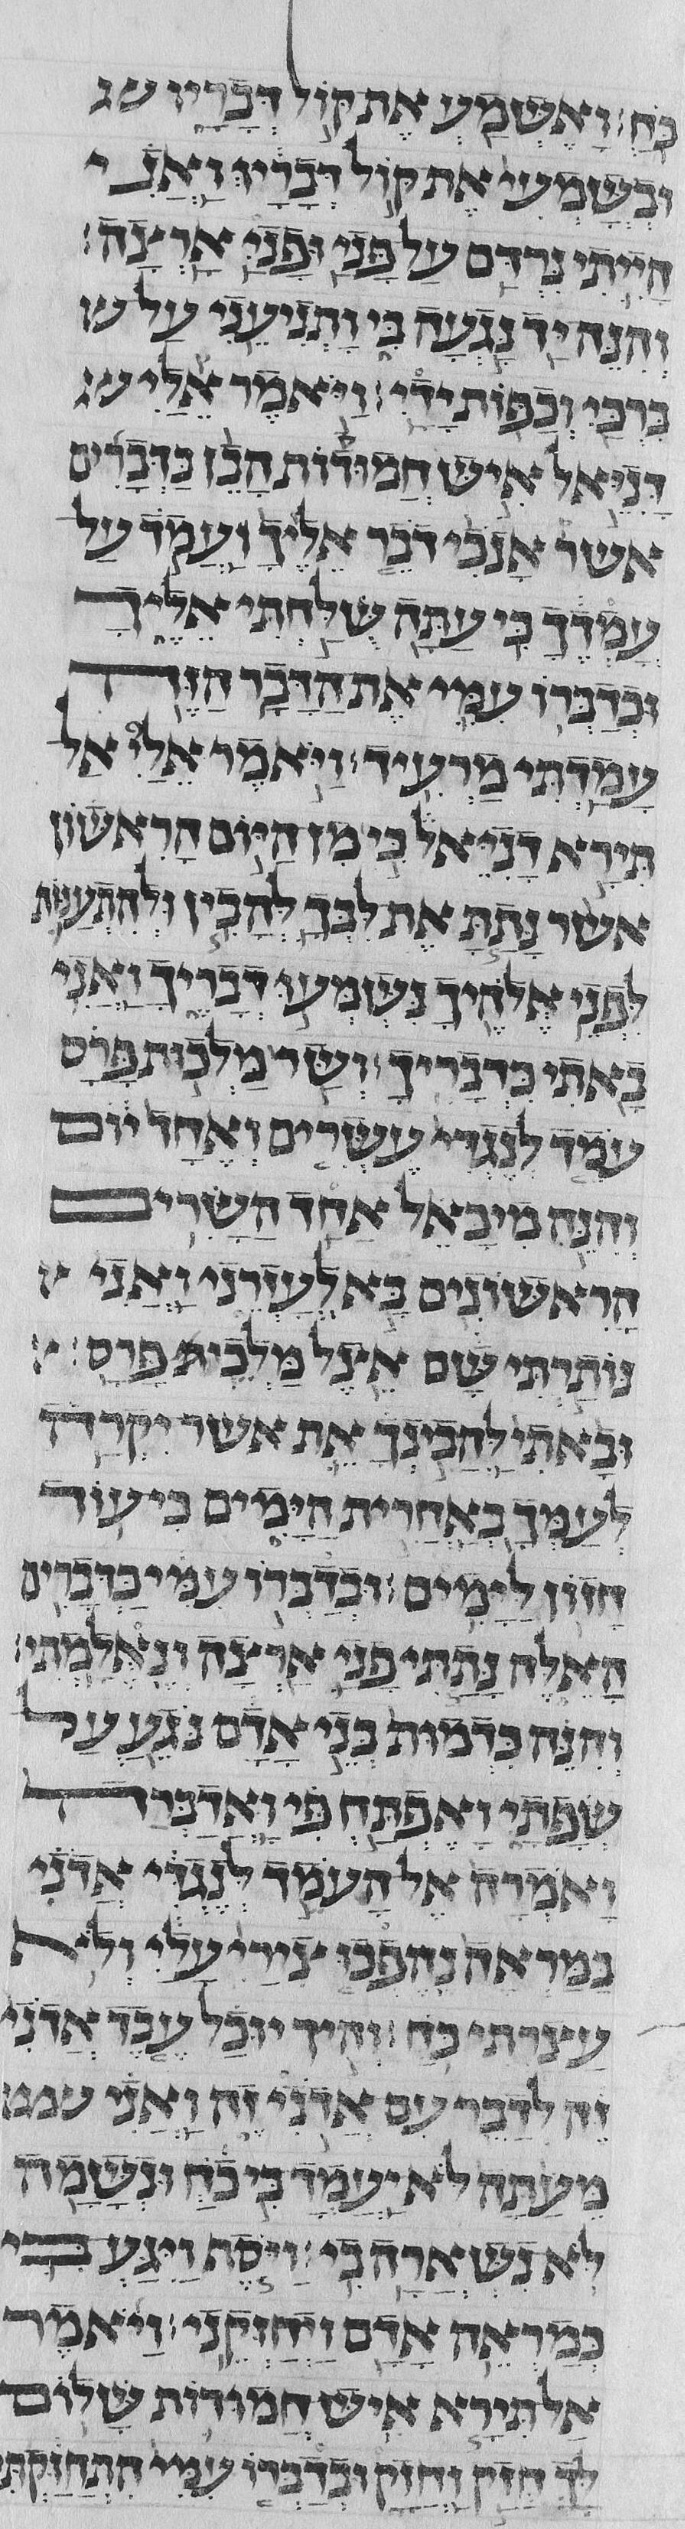 כֹּחַ׃ וָאֶשְׁמַע אֶת קוֹל דְּבָרָיו
וּבְשָׁמְעִי אֶת קוֹל דְּבָרָיו וַאֲנִי
הָיִיתִי נִרְדָּם עַל פָּנַי וּפָנַי אָרְצָה׃
וְהִנֵּה יָד נָגְעָה בִּי וַתְּנִיעֵנִי עַל
בִּרְכַּי וְכַפּוֹת יָדָי׃ וַיֹּאמֶר אֵלַי
דָּנִיֵּאל אִישׁ חֲמוּדוֹת הָבֵן בַּדְּבָרִים
אשר אָנֹכִי דֹבֵר אֵלֶיךָ וַעֲמֹד עַל
עָמְדֶךָ כִּי עַתָּה שֻׁלַּחְתִּי אֵלֶיךָ
וּבְדַבְּרוֹ עִמִּי אֶת הַדָּבָר הַזֶּה
עָמַדְתִּי מַרְעִיד׃ וַיֹּאמֶר אֵלַי אַל
תִּירָא דָנִיֵּאל כִּי מִן הַיּוֹם הָרִאשׁוֹן
אשר נָתַתָּ אֶת לִבְּךָ לְהָבִין וּלְהִתְעַנּוֹת
לִפְנֵי אֱלֹהֶיךָ נִשְׁמְעוּ דְבָרֶיךָ וַאֲנִי
בָאתִי בִּדְבָרֶיךָ׃ וְשַׂר מַלְכוּת פָּרַס
עֹמֵד לְנֶגְדִּי עֶשְׂרִים וְאֶחָד יוֹם
וְהִנֵּה מִיכָאֵל אַחַד הַשָּׂרִים
הָרִאשׁוֹנִים בָּא לְעָזְרֵנִי וַאֲנִי
נוֹתַרְתִּי שָׁם אֵצֶל מַלְכֵי פָרָס׃
וּבָאתִי לַהֲבִינְךָ אֵת אשר יִקְרָה
לְעַמְּךָ בְּאַחֲרִית הַיָּמִים כִּי עוֹד
חָזוֹן לַיָּמִים׃ וּבְדַבְּרוֹ עִמִּי כַּדְּבָרִים
הָאֵלֶּה נָתַתִּי פָנַי אַרְצָה וְנֶאֱלָמְתִּי׃
וְהִנֵּה כִּדְמוּת בְּנֵי אָדָם נֹגֵעַ עַל
שְׂפָתָי וָאֶפְתַּח פִּי וָאֲדַבְּרָה
וָאֹמְרָה אֶל הָעֹמֵד לְנֶגְדִּי אֲדֹנִי
בַּמַּרְאָה נֶהֶפְכוּ צִירַי עָלַי וְלֹא
עָצַרְתִּי כֹּחַ׃ וְהֵיךְ יוּכַל עֶבֶד אֲדֹנִי
זֶה לְדַבֵּר עִם אֲדֹנִי זֶה וַאֲנִי
מֵעַתָּה לֹא יַעֲמָד בִּי כֹחַ וּנְשָׁמָה
לֹא נִשְׁאֲרָה בִי׃ וַיֹּסֶף וַיִּגַּע בִּי
כְּמַרְאֵה אָדָם וַיְחַזְּקֵנִי׃ וַיֹּאמֶר
אַל תִּירָא אִישׁ חֲמוּדוֹת שָׁלוֹם
לָךְ חֲזַק וַחֲזָק וּבְדַבְּרוֹ עִמִּי הִתְחַזַּקְתִּי